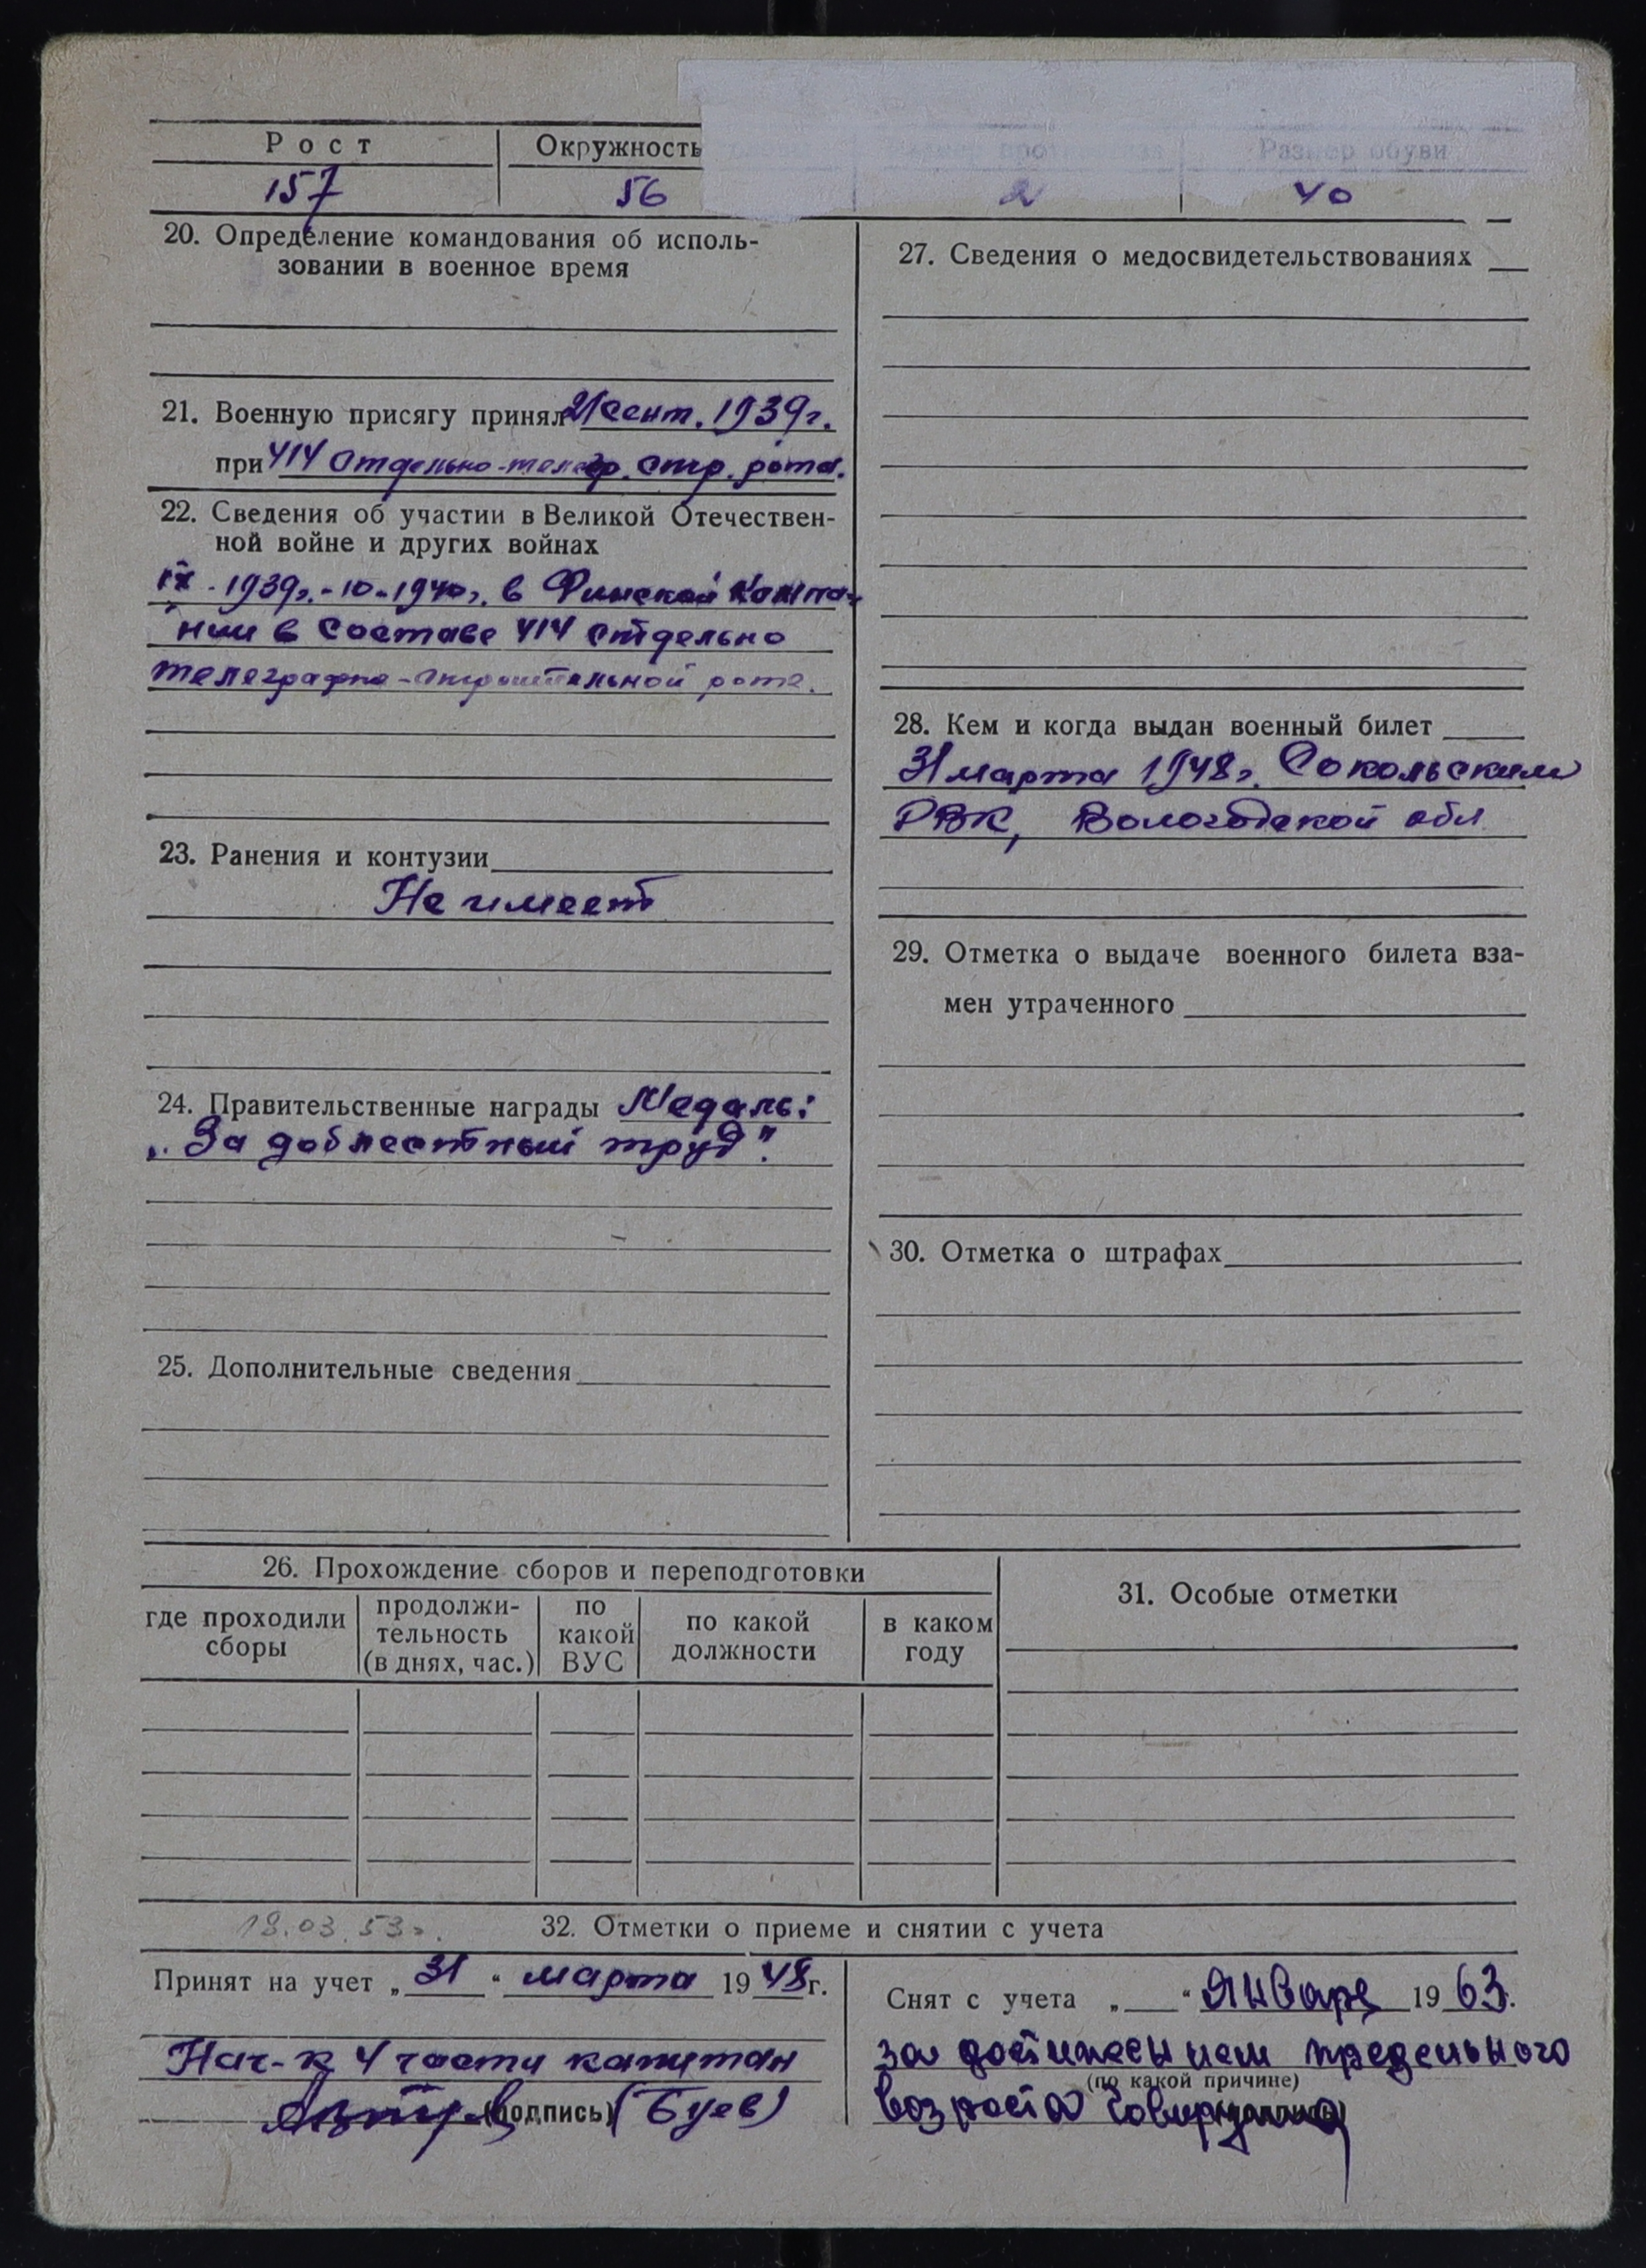 Рост
Окружность
Размер обуви
157
56
2
40
20. Определение командования об исполь-
зовании в военное время
21. Военную присягу принял 21 сент. 1939г.
при 414 Отдельно-телегр. стр. рота.
22. Сведения об участии в Великой Отечествен-
ной войне и других войнах
IX - 1939г.-10-1940г. в Финской Кампа-
нии в составе 414 отдельно
телеграфно-строительной роте.
23. Ранения и контузии
Не имеет
24. Правительственные награды Медаль:
„За доблестный труд".
25. Дополнительные сведения
27. Сведения о медосвидетельствованиях
28. Кем и когда выдан военный билет
31 марта 1948г. Сокольским
РВК, Вологодской обл
29. Отметка о выдаче военного билета вза-
мен утраченного
30. Отметка о штрафах
26. Прохождение сборов и переподготовки
где проходили
сборы
продолжи-
тельность
(в днях, час.)
по
какой
ВУС
по какой
должности
в каком
году
31. Особые отметки
18.03.53г.
32. Отметки о приеме и снятии с учета
Принят на учет „31" марта 1948г.
Нач-к 4 части капитан
(подпись) (Буев)
Снят с учета „ " Январе 1963.
за достижением предельного
(по какой причине)
возраста